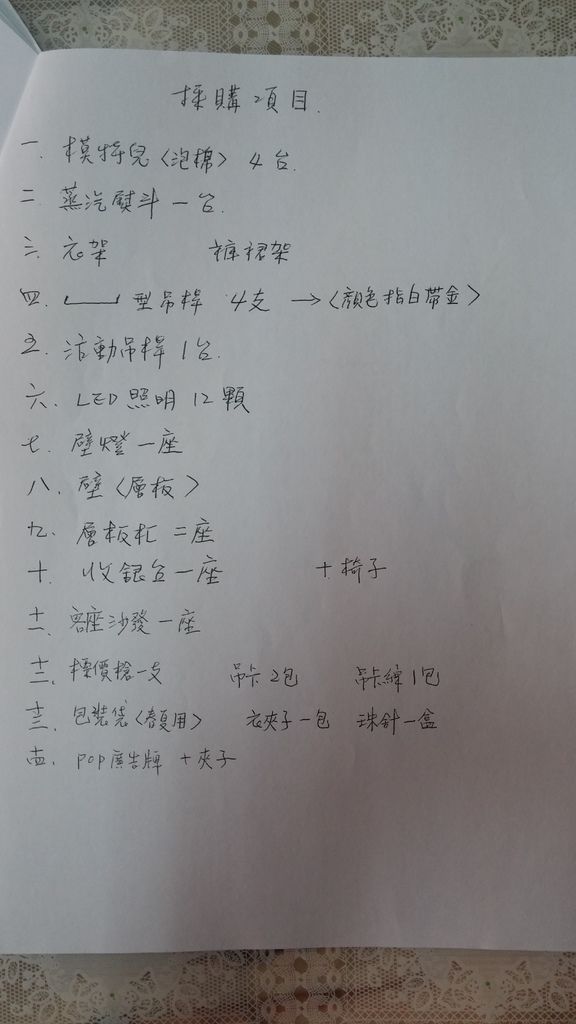 採購項目.
一. 模特兒〈泡棉〉 4台.
二. 蒸汽熨斗一台.
三. 衣架 褲裙架
四. 型吊桿 4支 →〈顏色指白帶金〉
五. 活動吊桿1台.
六. LED照明12顆
七. 壁燈一座
八. 壁〈層板〉
九. 層板櫃 二座
十. 收銀台一座 + 椅子
十一. 客座沙發一座
十二. 標價槍一支 吊卡2包 吊卡繩1包
十三. 包裝袋〈春夏用〉 衣夾子一包 珠針一盒
十四. POP廣告牌 + 夾子